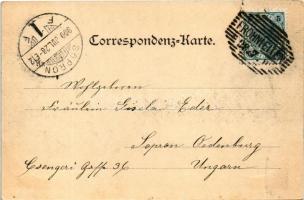 Correspondenz-Karte.
SOPRON
5
Wohlgeboren
Fräulein Gisela Eder
Sopron Oedenburg
Csengeri Gasse 36
Ungarn